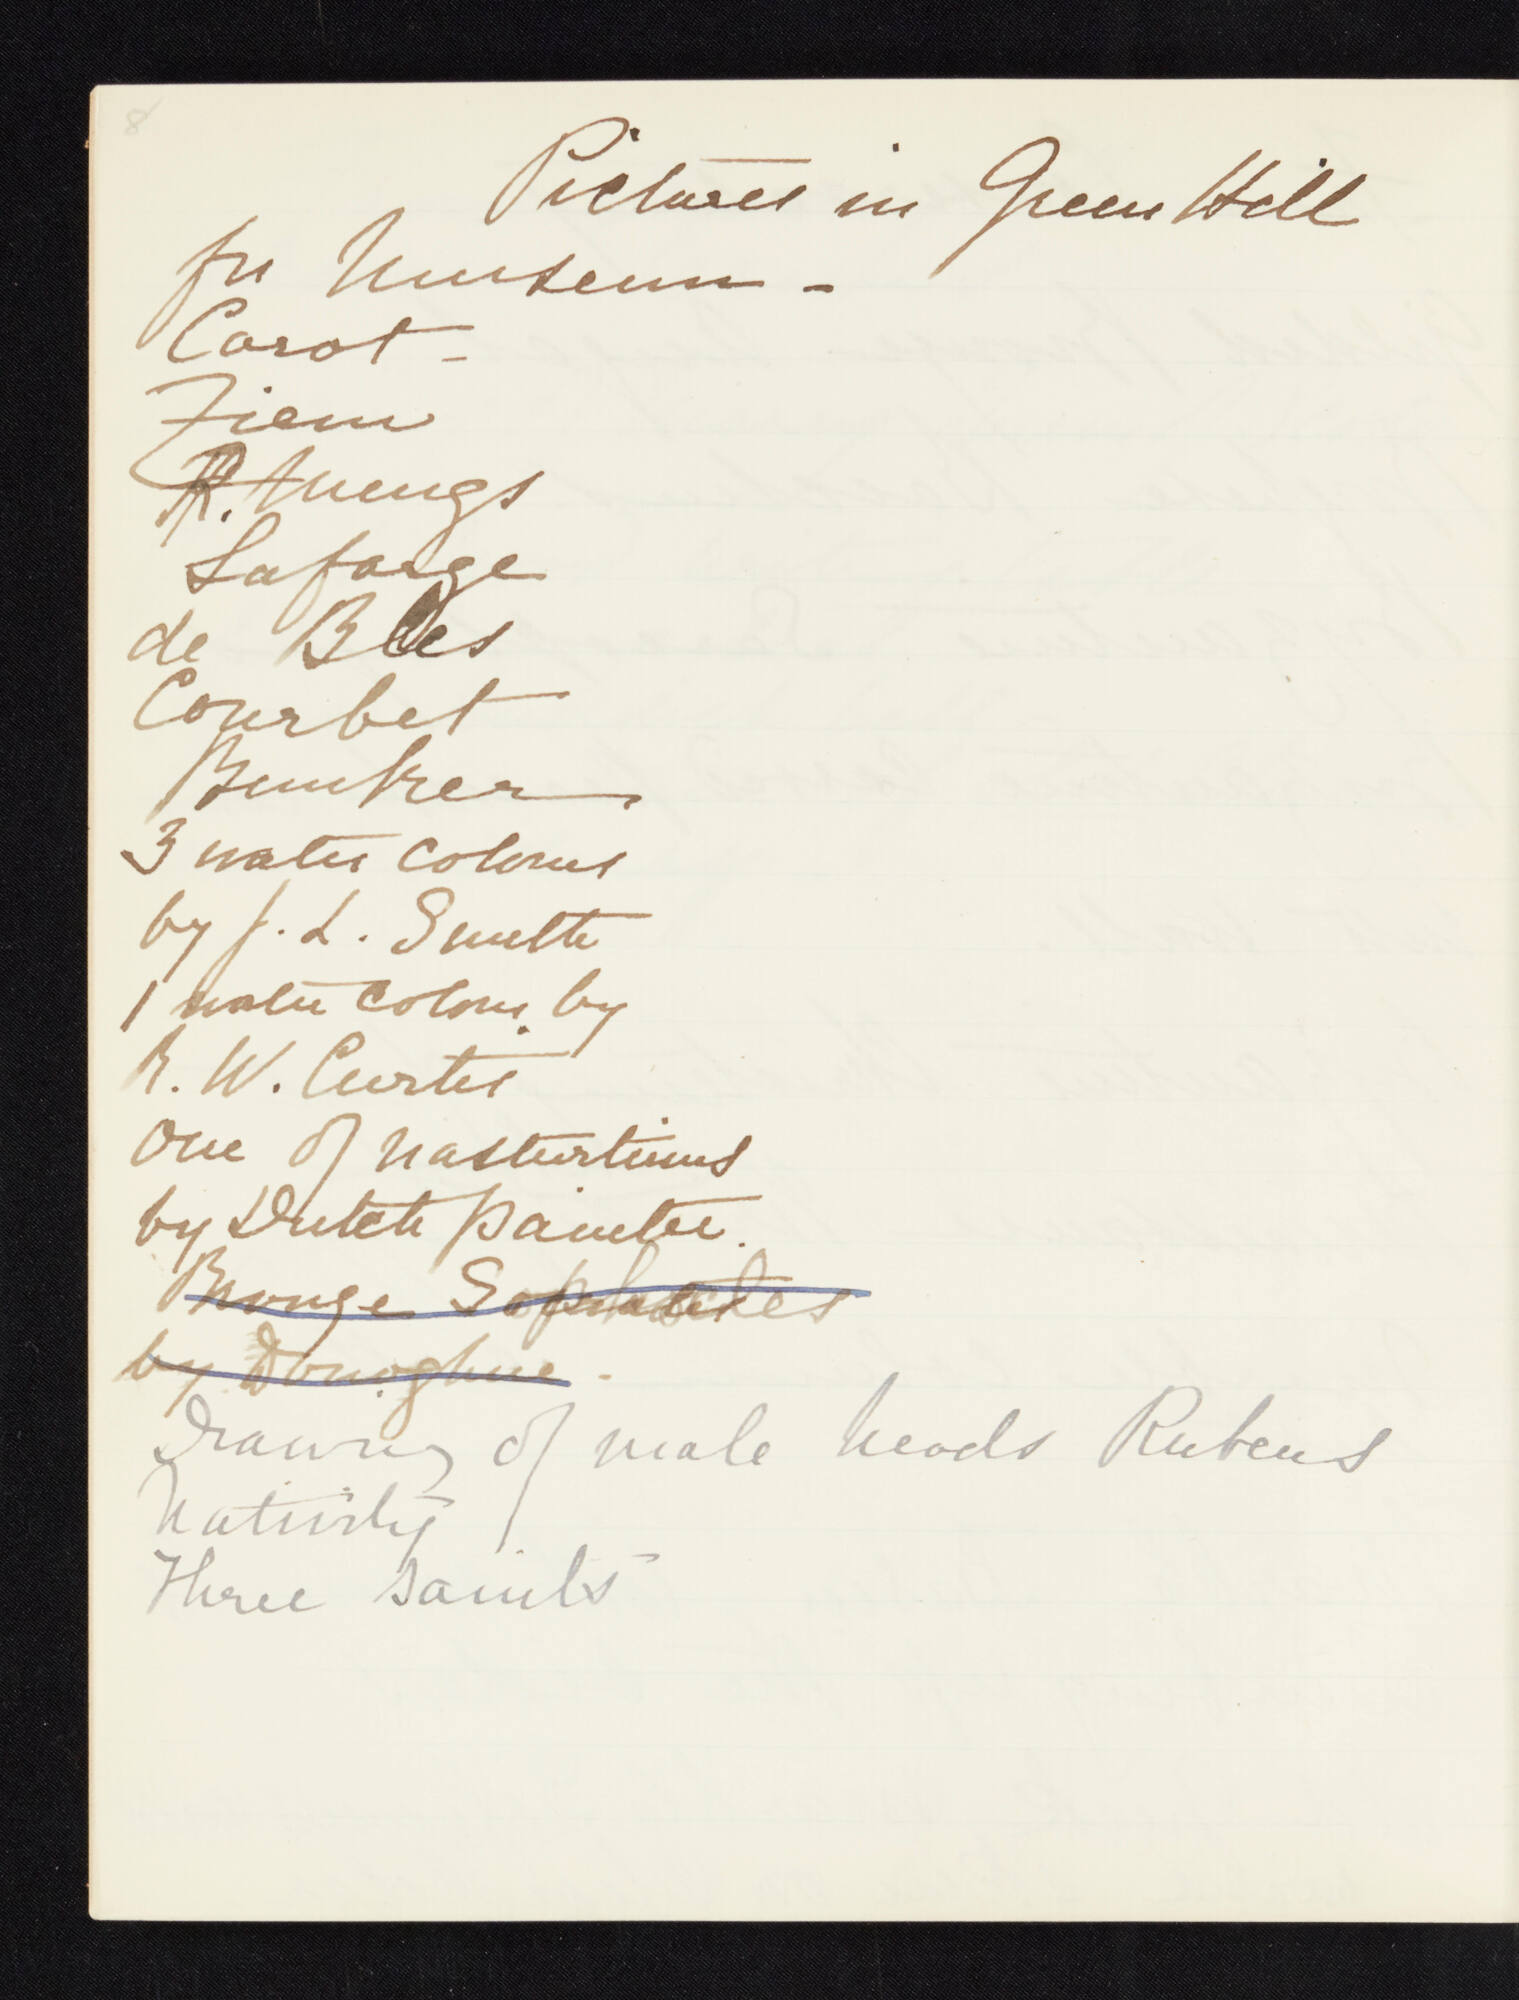 8
Pictures in Green Hill
for Museum -
Corot -
Ziem
R. Mengs
Lafarge
de Bles
Courbet
Bunker
3 water colours
by J. L. Smith
1 water colour by
R. W. Curtis
One of nasturtiums
by Dutch painter.
Bronze Sophocles
by Donoghue -
Drawing of male heads Rubens
Nativity
Three saints